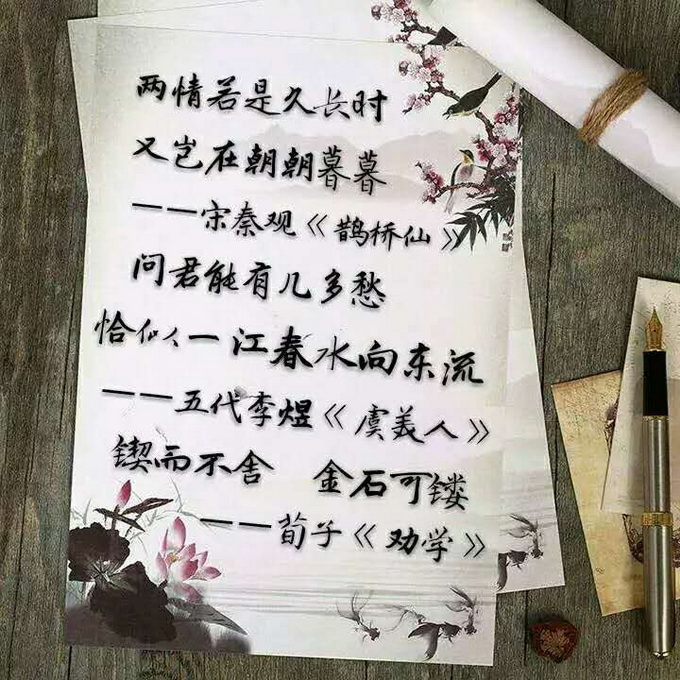 两情若是久长时
又岂在朝朝暮暮
——宋秦观《鹊桥仙》
问君能有几多愁
恰似人一江春水向东流
——五代李煜《虞美人》
锲而不舍 金石可镂
——荀子《劝学》